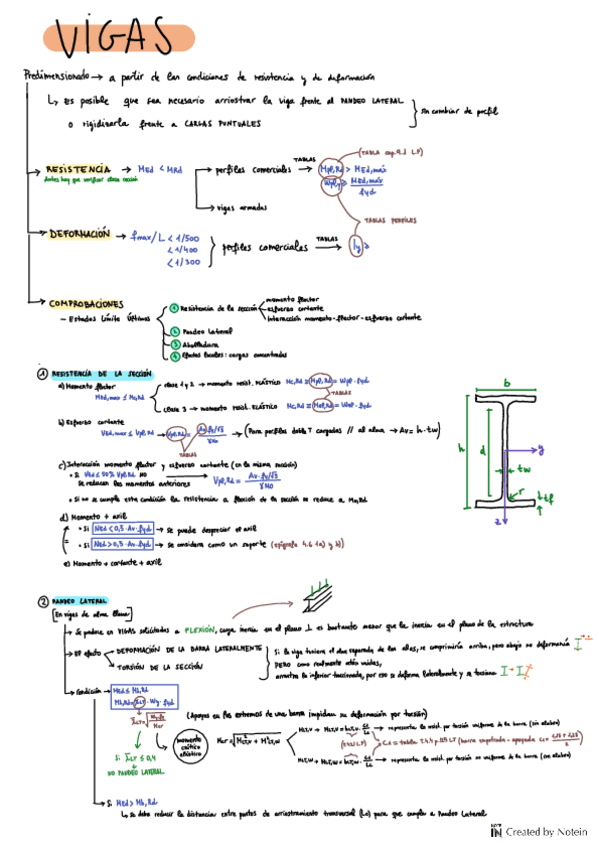 VIGAS
Predimensionado → a partir de las condiciones de resistencia y de deformación
↳ es posible que sea necesario arriostrar la viga frente al PANDEO LATERAL
o rigidizarla frente a CARGAS PUNTUALES
sin cambiar de perfil
RESISTENCIA → MEd < MRd
Antes hay que verificar clase sección
perfiles comerciales → TABLAS
(TABLA cap.
Mpl,Rd > MEd,max
Wpl,y > MEd,max / fyd
vigas armadas
TABLAS PERFILES
DEFORMACIÓN → fmax/L < 1/500
< 1/400
< 1/300
perfiles comerciales → TABLAS
Iy >
COMPROBACIONES
- Estados Límite Últimos
1 Resistencia de la sección
momento flector
esfuerzo cortante
interacción momento-flector-esfuerzo cortante
2 Pandeo Lateral
3 Abolladura
4 Efectos locales: cargas concentradas
1 RESISTENCIA DE LA SECCIÓN
a) Momento flector
MEd,max ≤ Mc,Rd
clase 1 y 2 → momento resist. PLÁSTICO Mc,Rd = Mpl,Rd = Wpl · fyd
TABLAS
clase 3 → momento resist. ELÁSTICO Mc,Rd = Mel,Rd = Wel · fyd
b) Esfuerzo cortante
VEd,max ≤ Vpl,Rd → Vpl,Rd = Av·fy/√3 / γM0 → (Para perfiles doble T cargados // al alma → Av = h·tw)
TABLAS
c) Interacción momento flector y esfuerzo cortante (en la misma sección)
• Si VEd ≤ 50% Vpl,Rd NO
se reducen los momentos anteriores
Vpl,Rd = Av·fy/√3 / γM0
• Si no se cumple esta condición la resistencia a flexión de la sección se reduce a Mv,Rd
d) Momento + axil
• Si NEd < 0,5·Av·fyd → se puede despreciar el axil
• Si NEd > 0,5·Av·fyd → se considera como un soporte (epígrafe 4.6 1a) y b))
e) Momento + cortante + axil
b
h
d
tw
y
r
tf
z
2 PANDEO LATERAL
[En vigas de alma llena]
Se produce en VIGAS solicitadas a FLEXIÓN, cuya inercia en el plano ⊥ es bastante menor que la inercia en el plano de la estructura
El efecto
DEFORMACIÓN DE LA BARRA LATERALMENTE
TORSIÓN DE LA SECCIÓN
Si la viga tuviera el alma separada de las alas, se comprimiría arriba, pero abajo no deformaría
PERO como realmente están unidas,
arrastra la inferior traccionada, por eso se deforma lateralmente y se torsiona
Condición → MEd ≤ Mb,Rd
Mb,Rd = χLT · Wy · fyd
λLT = √(Wy·fy / Mcr)
(Apoyos en los extremos de una barra impiden su deformación por torsión)
momento crítico elástico
Mcr = √(M²LT,v + M²LT,w)
→ representa la resist. por torsión uniforme de la barra (sin alabeo)
→ representa la resist. por torsión no uniforme de la barra
Si λLT ≤ 0,4
NO PANDEO LATERAL
Si MEd > Mb,Rd
↳ se debe reducir la distancia entre puntos de arriostramiento transversal (Lc) para que cumpla a Pandeo Lateral
Created by Notein